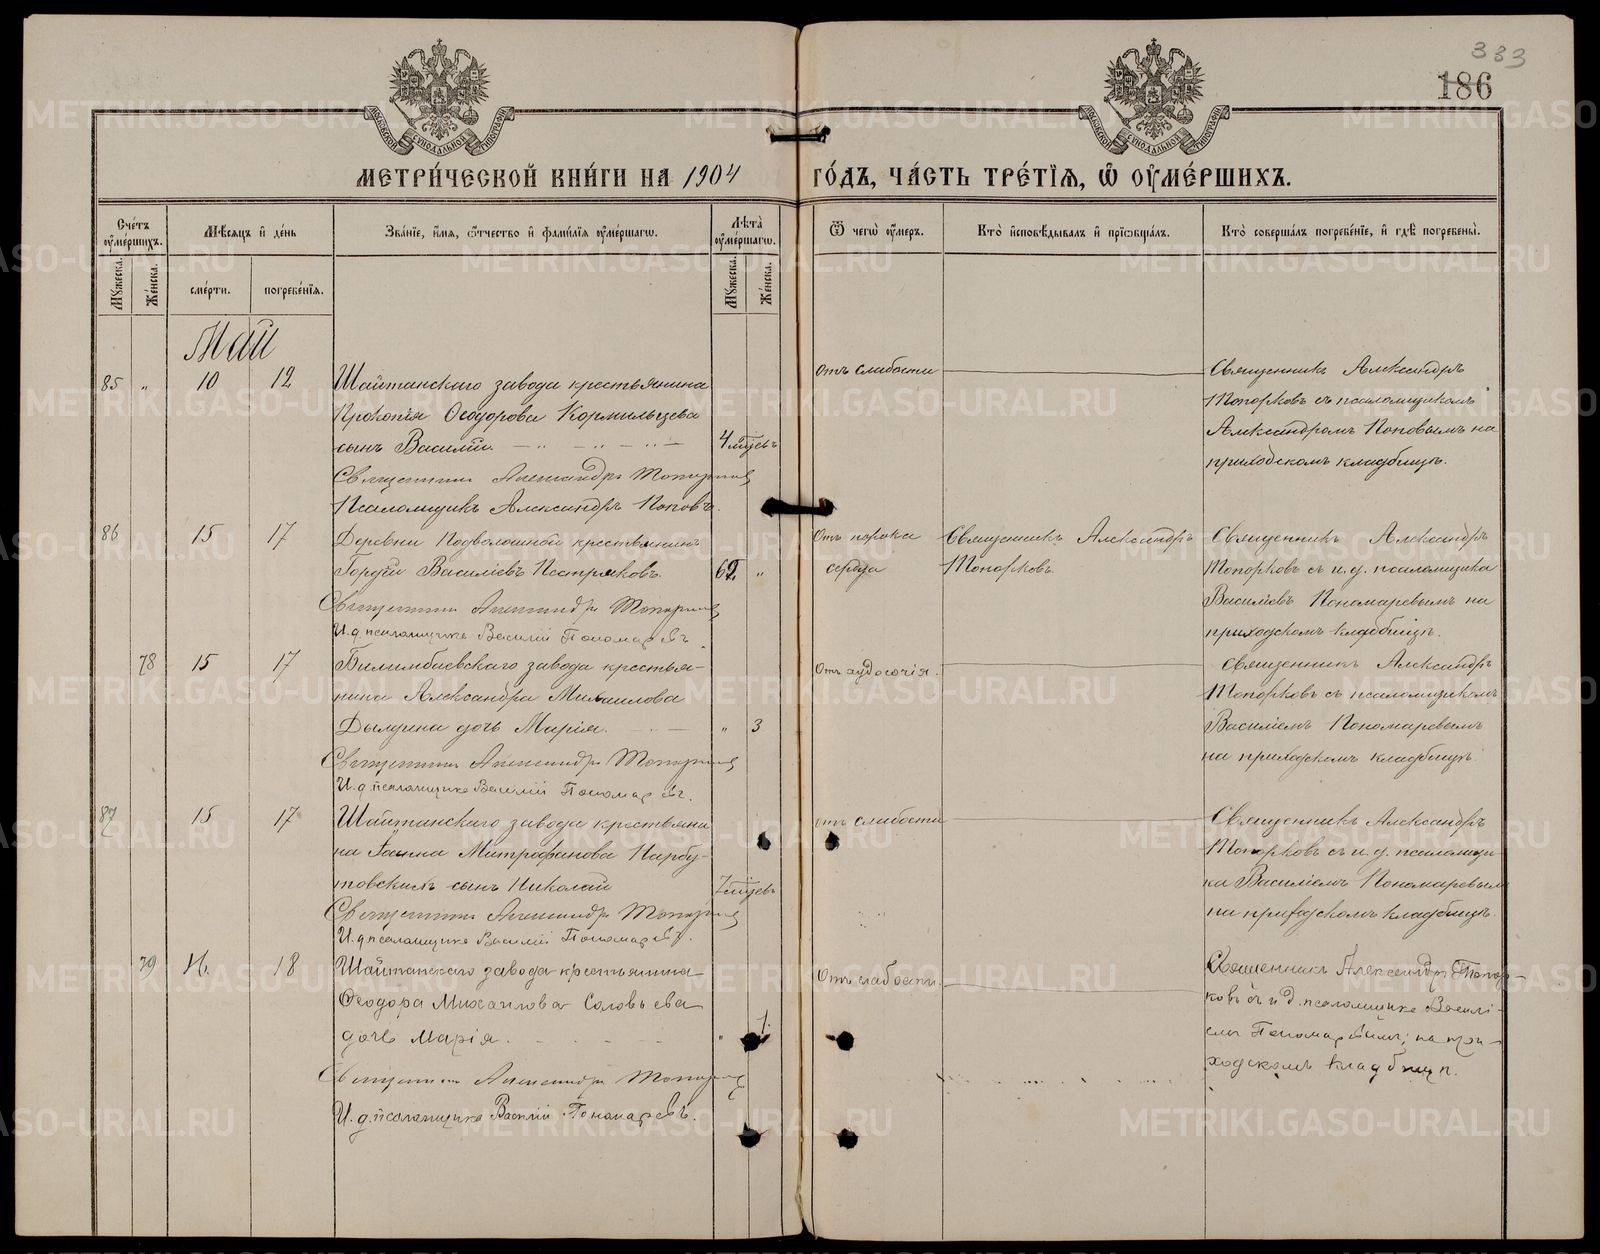 333
186
МЕТРИ́ЧЕСКОЙ КНИ́ГИ НА 1904 ГО́ДЪ, ЧА́СТЬ ТРЕ́ТІЯ, Ѿ ОУМЕ́РШИХЪ.
Сче́тъ оуме́ршихъ.
Мѣсяцъ и день
Зва́ніе, и́мя, о́тчество и фами́лія оуме́ршагѡ.
Лѣта̀ оуме́ршагѡ.
Ѿ чегѡ̀ оу́меръ.
Кто̀ исповѣ́дывалъ и прїѡбща́лъ.
Кто̀ соверша́лъ погребе́ніе, и гдѣ̀ погребены̀.
Мужеска.
Же́нска.
сме́рти.
погребе́нія.
Мужеска.
Же́нска.
Май
85 „ 10 12 Шайтанскаго завода крестьянина
Прокопія Ѳеодорова Кормильцева
сынъ Василій. 4 мѣсъ
Священникъ Александръ Топорковъ
Псаломщикъ Александръ Поповъ.
отъ слабости
Священникъ Александръ
Топорковъ съ псаломщикомъ
Александромъ Поповымъ на
приходскомъ кладбищѣ.
86 15 17 Деревни Подволошной крестьянинъ
Гордій Василіевъ Пестряковъ. 62 „
Священникъ Александръ Топорковъ
И. д. псаломщика Василій Пономаревъ
Отъ порока
сердца
Священникъ Александръ
Топорковъ.
Священникъ Александръ
Топорковъ съ и. д. псаломщика
Василіевъ Пономаревымъ на
приходскомъ кладбищѣ.
78 15 17 Билимбаевскаго завода крестья-
нина Александра Михаилова
Дылдина дочь Марія. „ 3
Священникъ Александръ Топорковъ
И. д. псаломщика Василій Пономаревъ.
Священникъ Александръ
Топорковъ съ псаломщикомъ
Василіемъ Пономаревымъ
на приходскомъ кладбищѣ.
87 15 17 Шайтанскаго завода крестьяни
на Митрофанова Нарбу-
товскихъ сынъ Николай
Священникъ Александръ Топорковъ
И. д. псаломщика Василій Пономаревъ.
отъ слабости
Священникъ Александръ
Топорковъ съ и. д. псаломщи-
ка Василіемъ Пономаревымъ
на приходскомъ кладбищѣ.
79 18 Шайтанскаго завода крестьянина
Ѳеодора Михаилова Соловьева
дочь Марія. „ 1.
Священникъ Александръ Топорковъ
И. д. псаломщика Василій Пономаревъ.
Отъ слабости.
Священникъ Александръ Топор-
ковъ съ и д. псаломщика Василі-
емъ Пономаревымъ; на при-
ходскомъ кладбищѣ.
METRIKI.GASO-URAL.RU